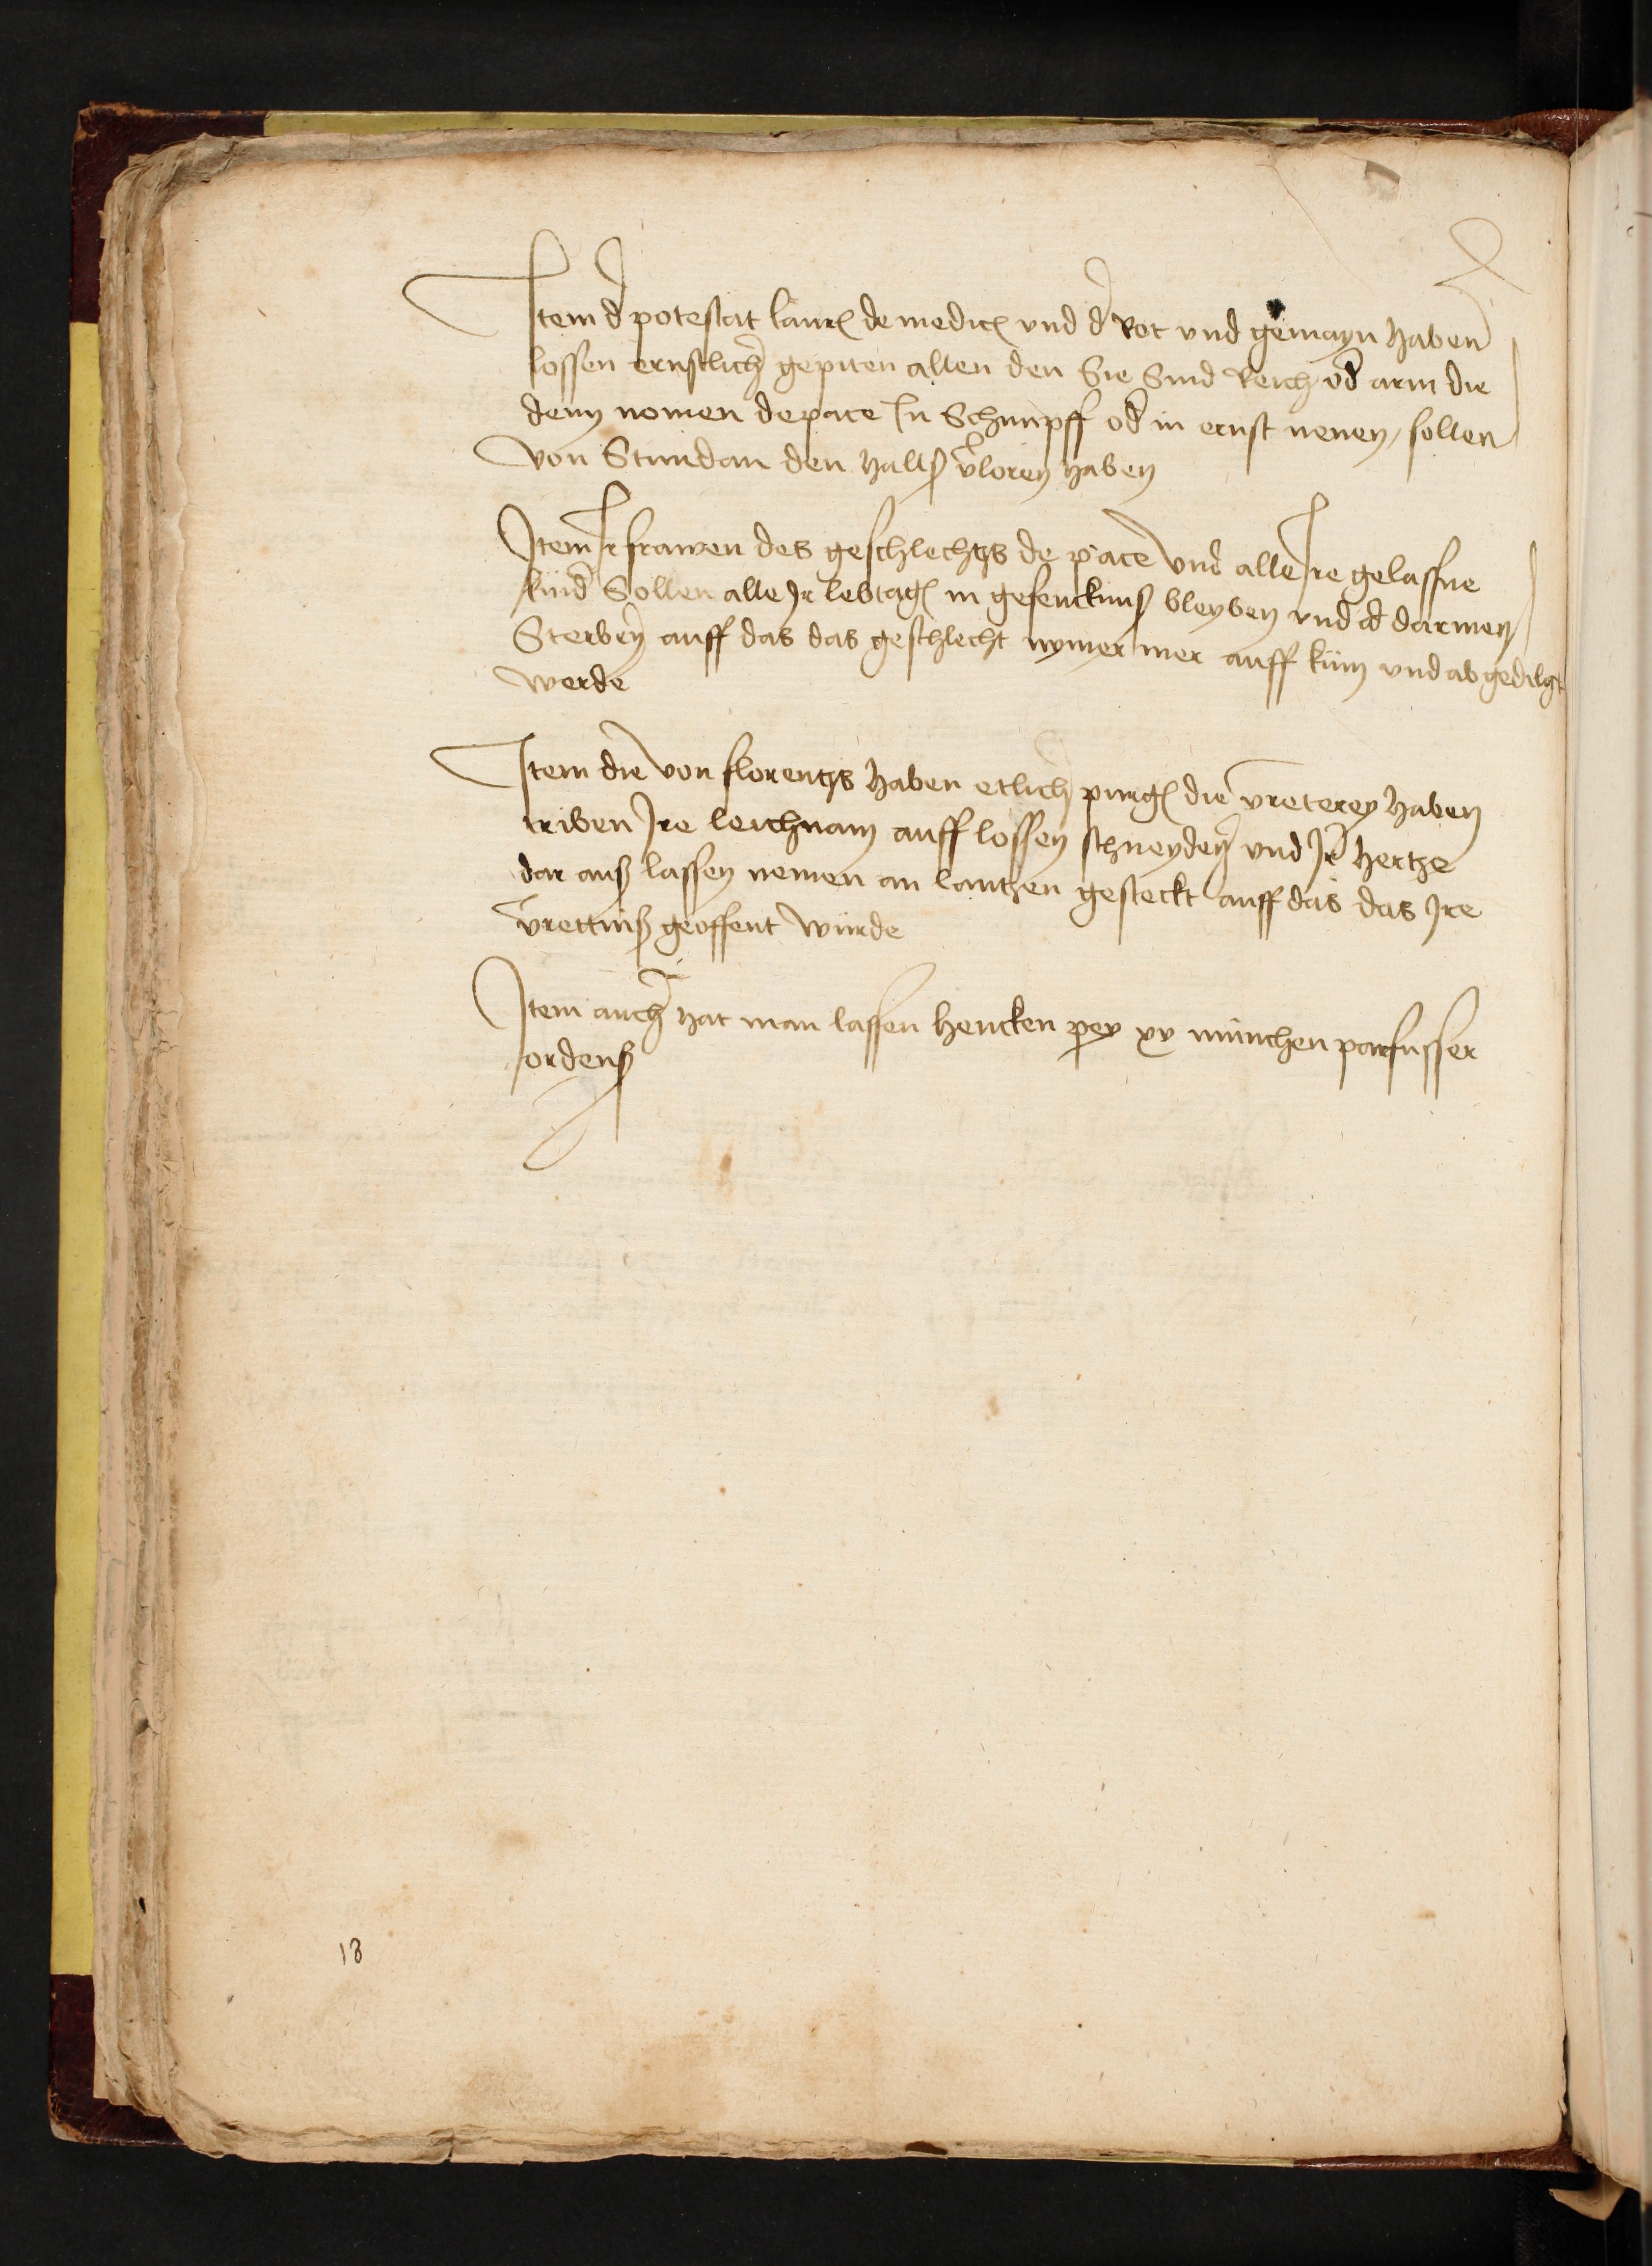 Item d potestat laur de medici und d Rot und gemayn haben
lossen ernstlich gepiten allen den Sie Sind Reich od arm die
dem nomen depace In Schimpff od in ernst nenen / sollen
von Stundan den halls vloren haben
Item Ir frawen des geschlechcz de pace und alle Ire gelassne
kind Sollen alle Ir lebtag in gefencknuß bleyben und darinnen
Sterben auff das das geschlecht nymer mer auff kum und abgedilgt
werde
Item die von florencz haben etlich purg die vreterey haben
triben Ire leichnam auff lossen schneyden und Ire hertze
dar auß lassen nemen an lantzen gesteckt auff das das Ire
vrettniß geoffent würde
Item auch hat man lassen hencken pey xv münchen parfusser
ordenß
18